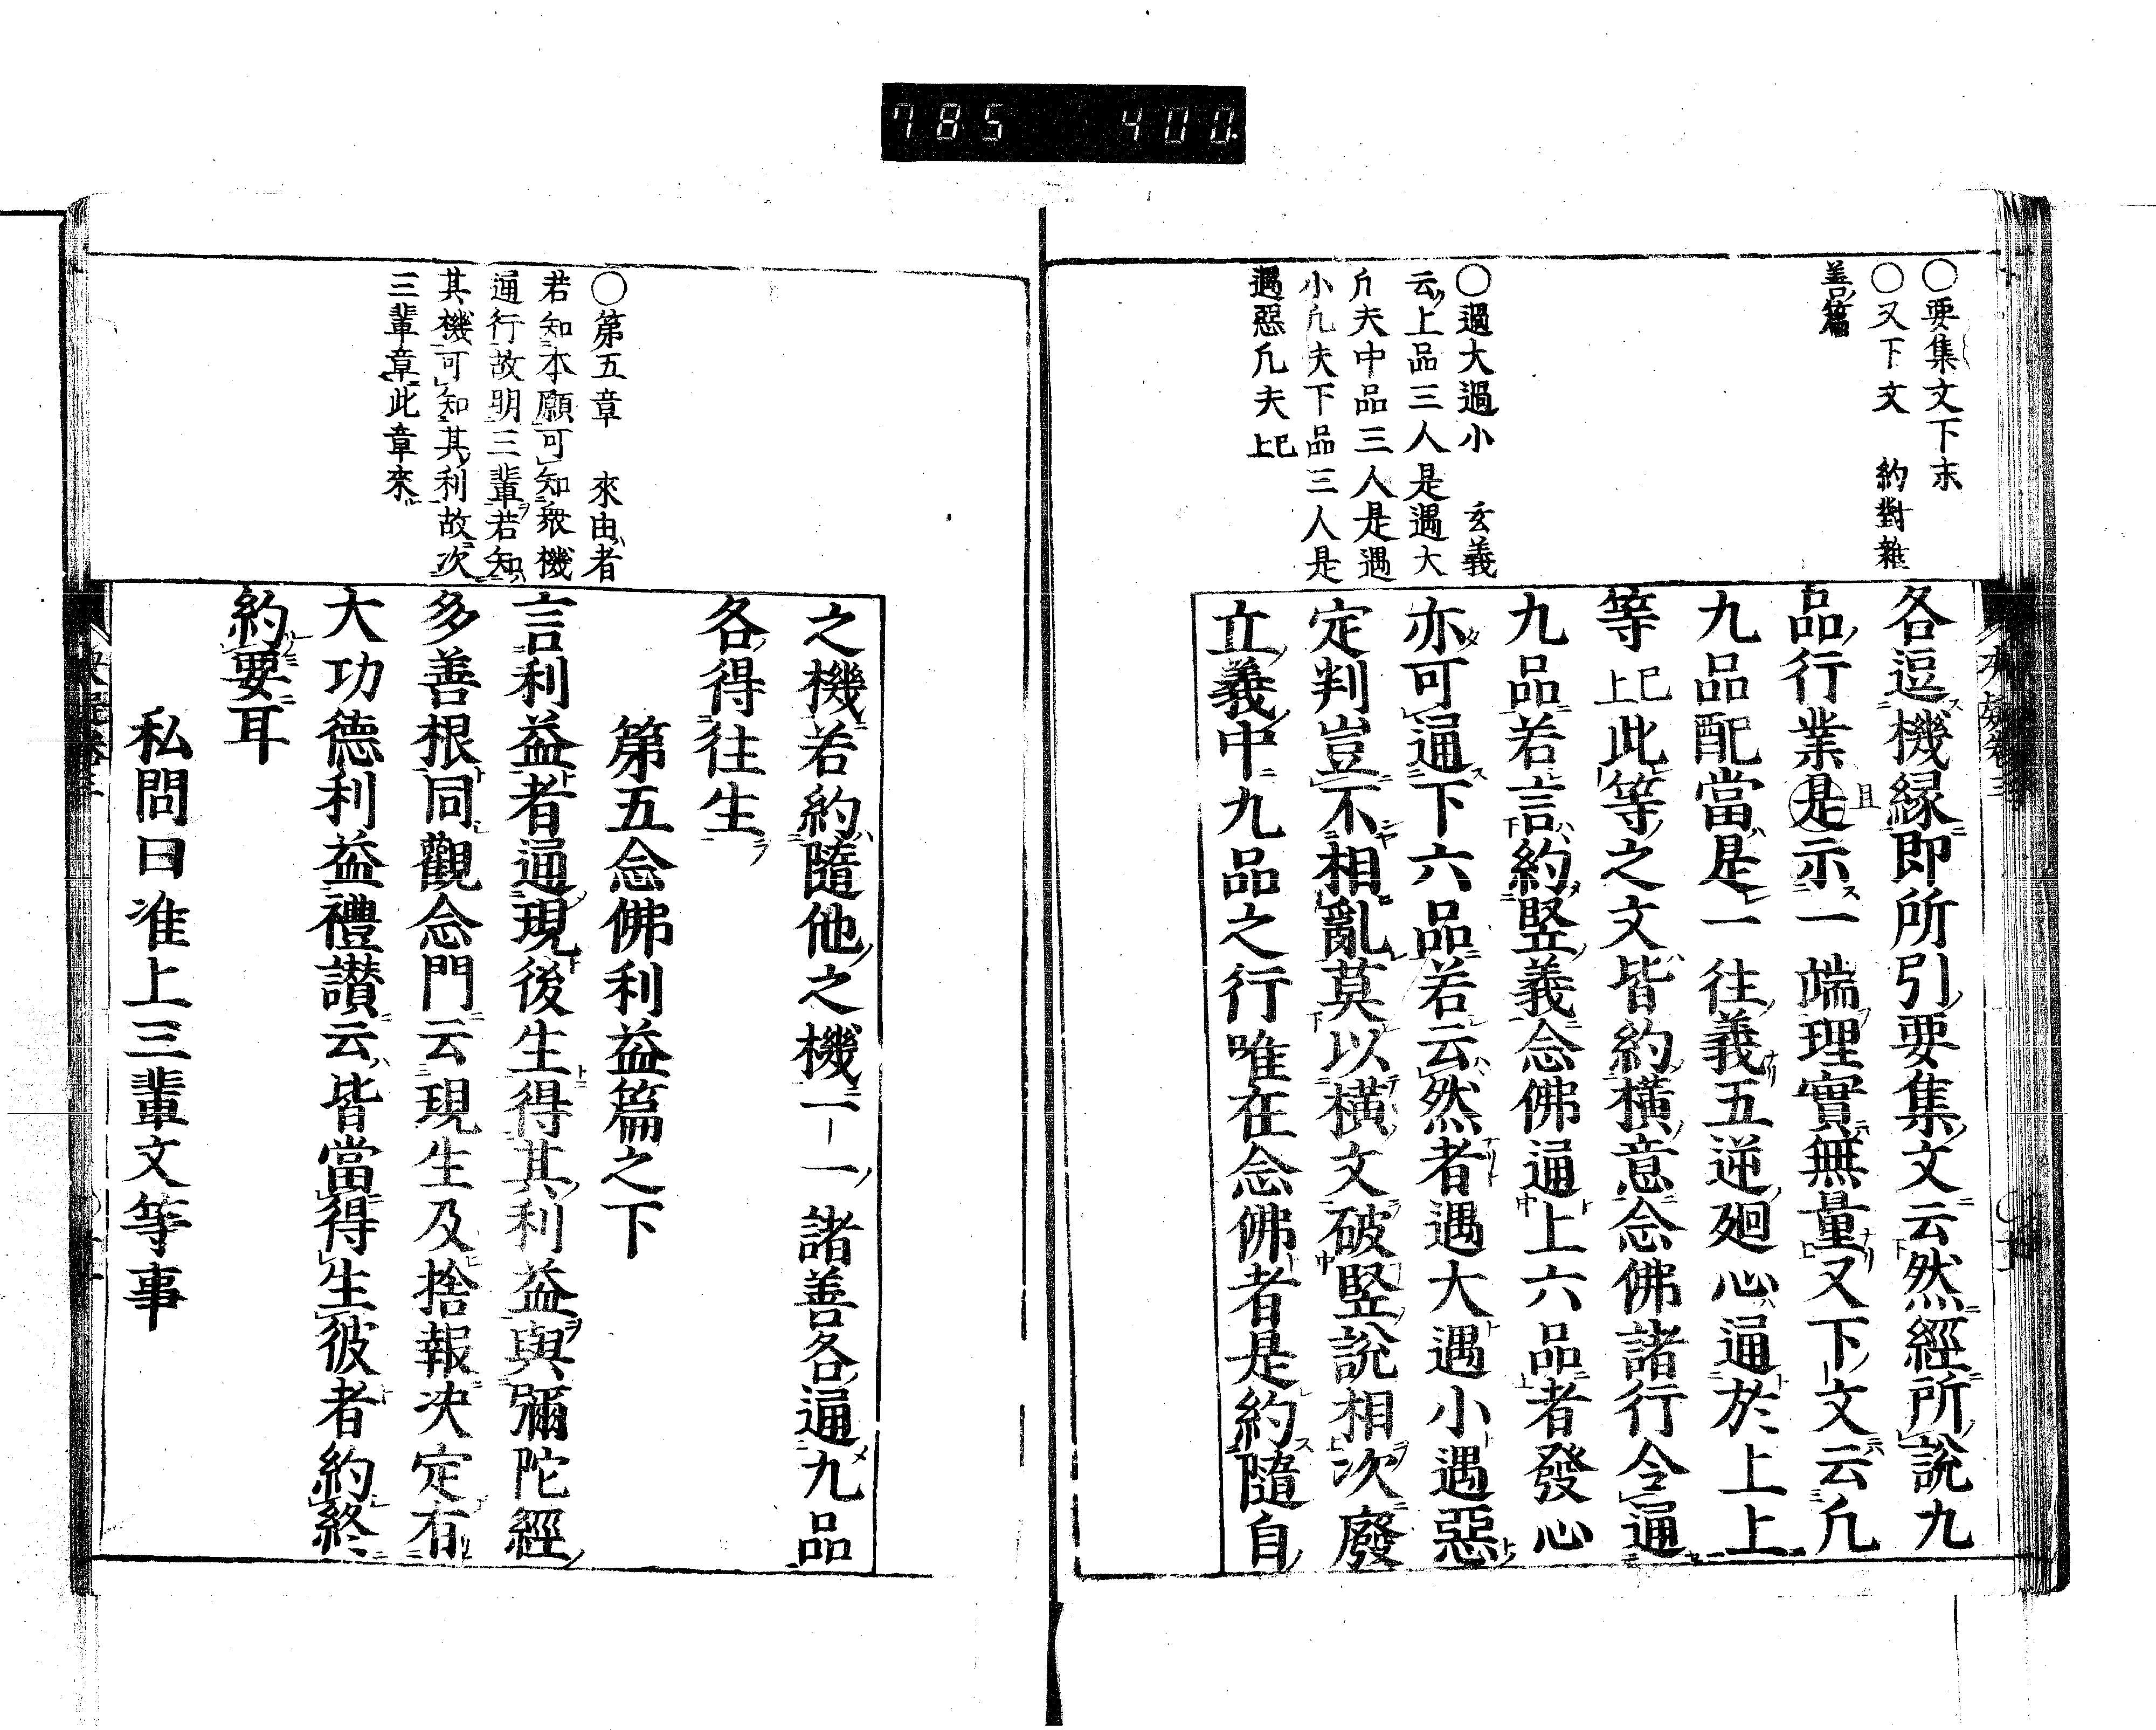 785 400.
○要集文下末
○又下文 約對雜
善篇
○遇大遇小 玄義
云上品三人是遇大
凢夫中品三人是遇
小凢夫下品三人是
遇惡凢夫已上
各逗機縁即所引要集文云然經所說九
品行業是示一端理實無量又下文云凢
且
九品配當是一往義五逆廻心通於上上
等已上此等之文皆約橫意念佛諸行令通
九品若言約竪義念佛通上六品者發心
亦可通下六品若云然者遇大遇小遇惡
定判豈不相亂莫以橫文破竪說相次廢
立義中九品之行唯在念佛者是約隨自
○第五章 來由者
若知本願可知衆機
通行故明三輩若知
其機可知其利故次
三輩章此章來
之機若約隨他之機一一諸善各通九品
各得往生
第五念佛利益篇之下
言利益者通現後生得其利益與彌陀經
多善根同觀念門云現生及捨報决定有
大功德利益禮讃云皆當得生彼者約終
約要耳
私問曰准上三輩文等事